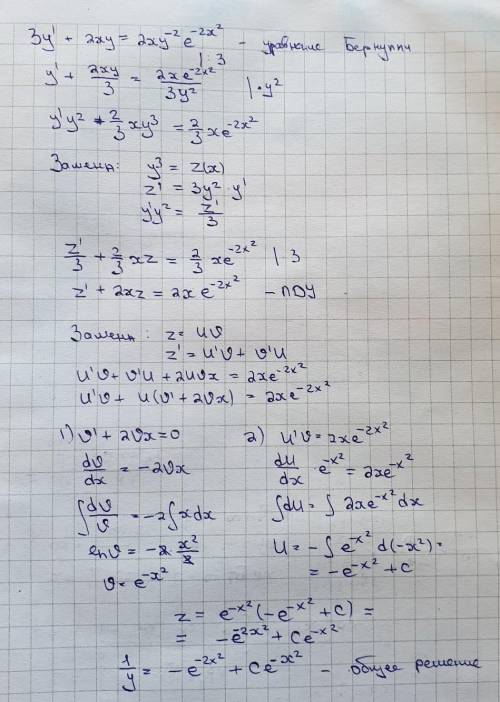 3y' + 2xy = 2xy⁻² e^(-2x²) - уравнение Бернулли
| : 3
y' + 2xy/3 = 2xe^(-2x²)/3y² | · y²
y'y² + 2/3 xy³ = 2/3 xe^(-2x²)
Замена: y³ = z(x)
z' = 3y² · y'
y'y² = z'/3
z'/3 + 2/3 xz = 2/3 xe^(-2x²) | 3
z' + 2xz = 2x e^(-2x²) - ЛДУ
Замена: z = uv
z' = u'v + v'u
u'v + v'u + 2uvx = 2xe^(-2x²)
u'v + u(v' + 2vx) = 2xe^(-2x²)
1) v' + 2vx = 0
dv/dx = -2vx
∫ dv/v = -2∫ x dx
ln v = -2 x²/2
v = e^(-x²)
2) u'v = 2xe^(-2x²)
du/dx · e^(-x²) = 2xe^(-2x²)
∫ du = ∫ 2xe^(-x²) dx
u = -∫ e^(-x²) d(-x²) =
= -e^(-x²) + C
z = e^(-x²) (-e^(-x²) + C) =
= -e^(-2x²) + Ce^(-x²)
1/y = -e^(-2x²) + Ce^(-x²) - общее решение